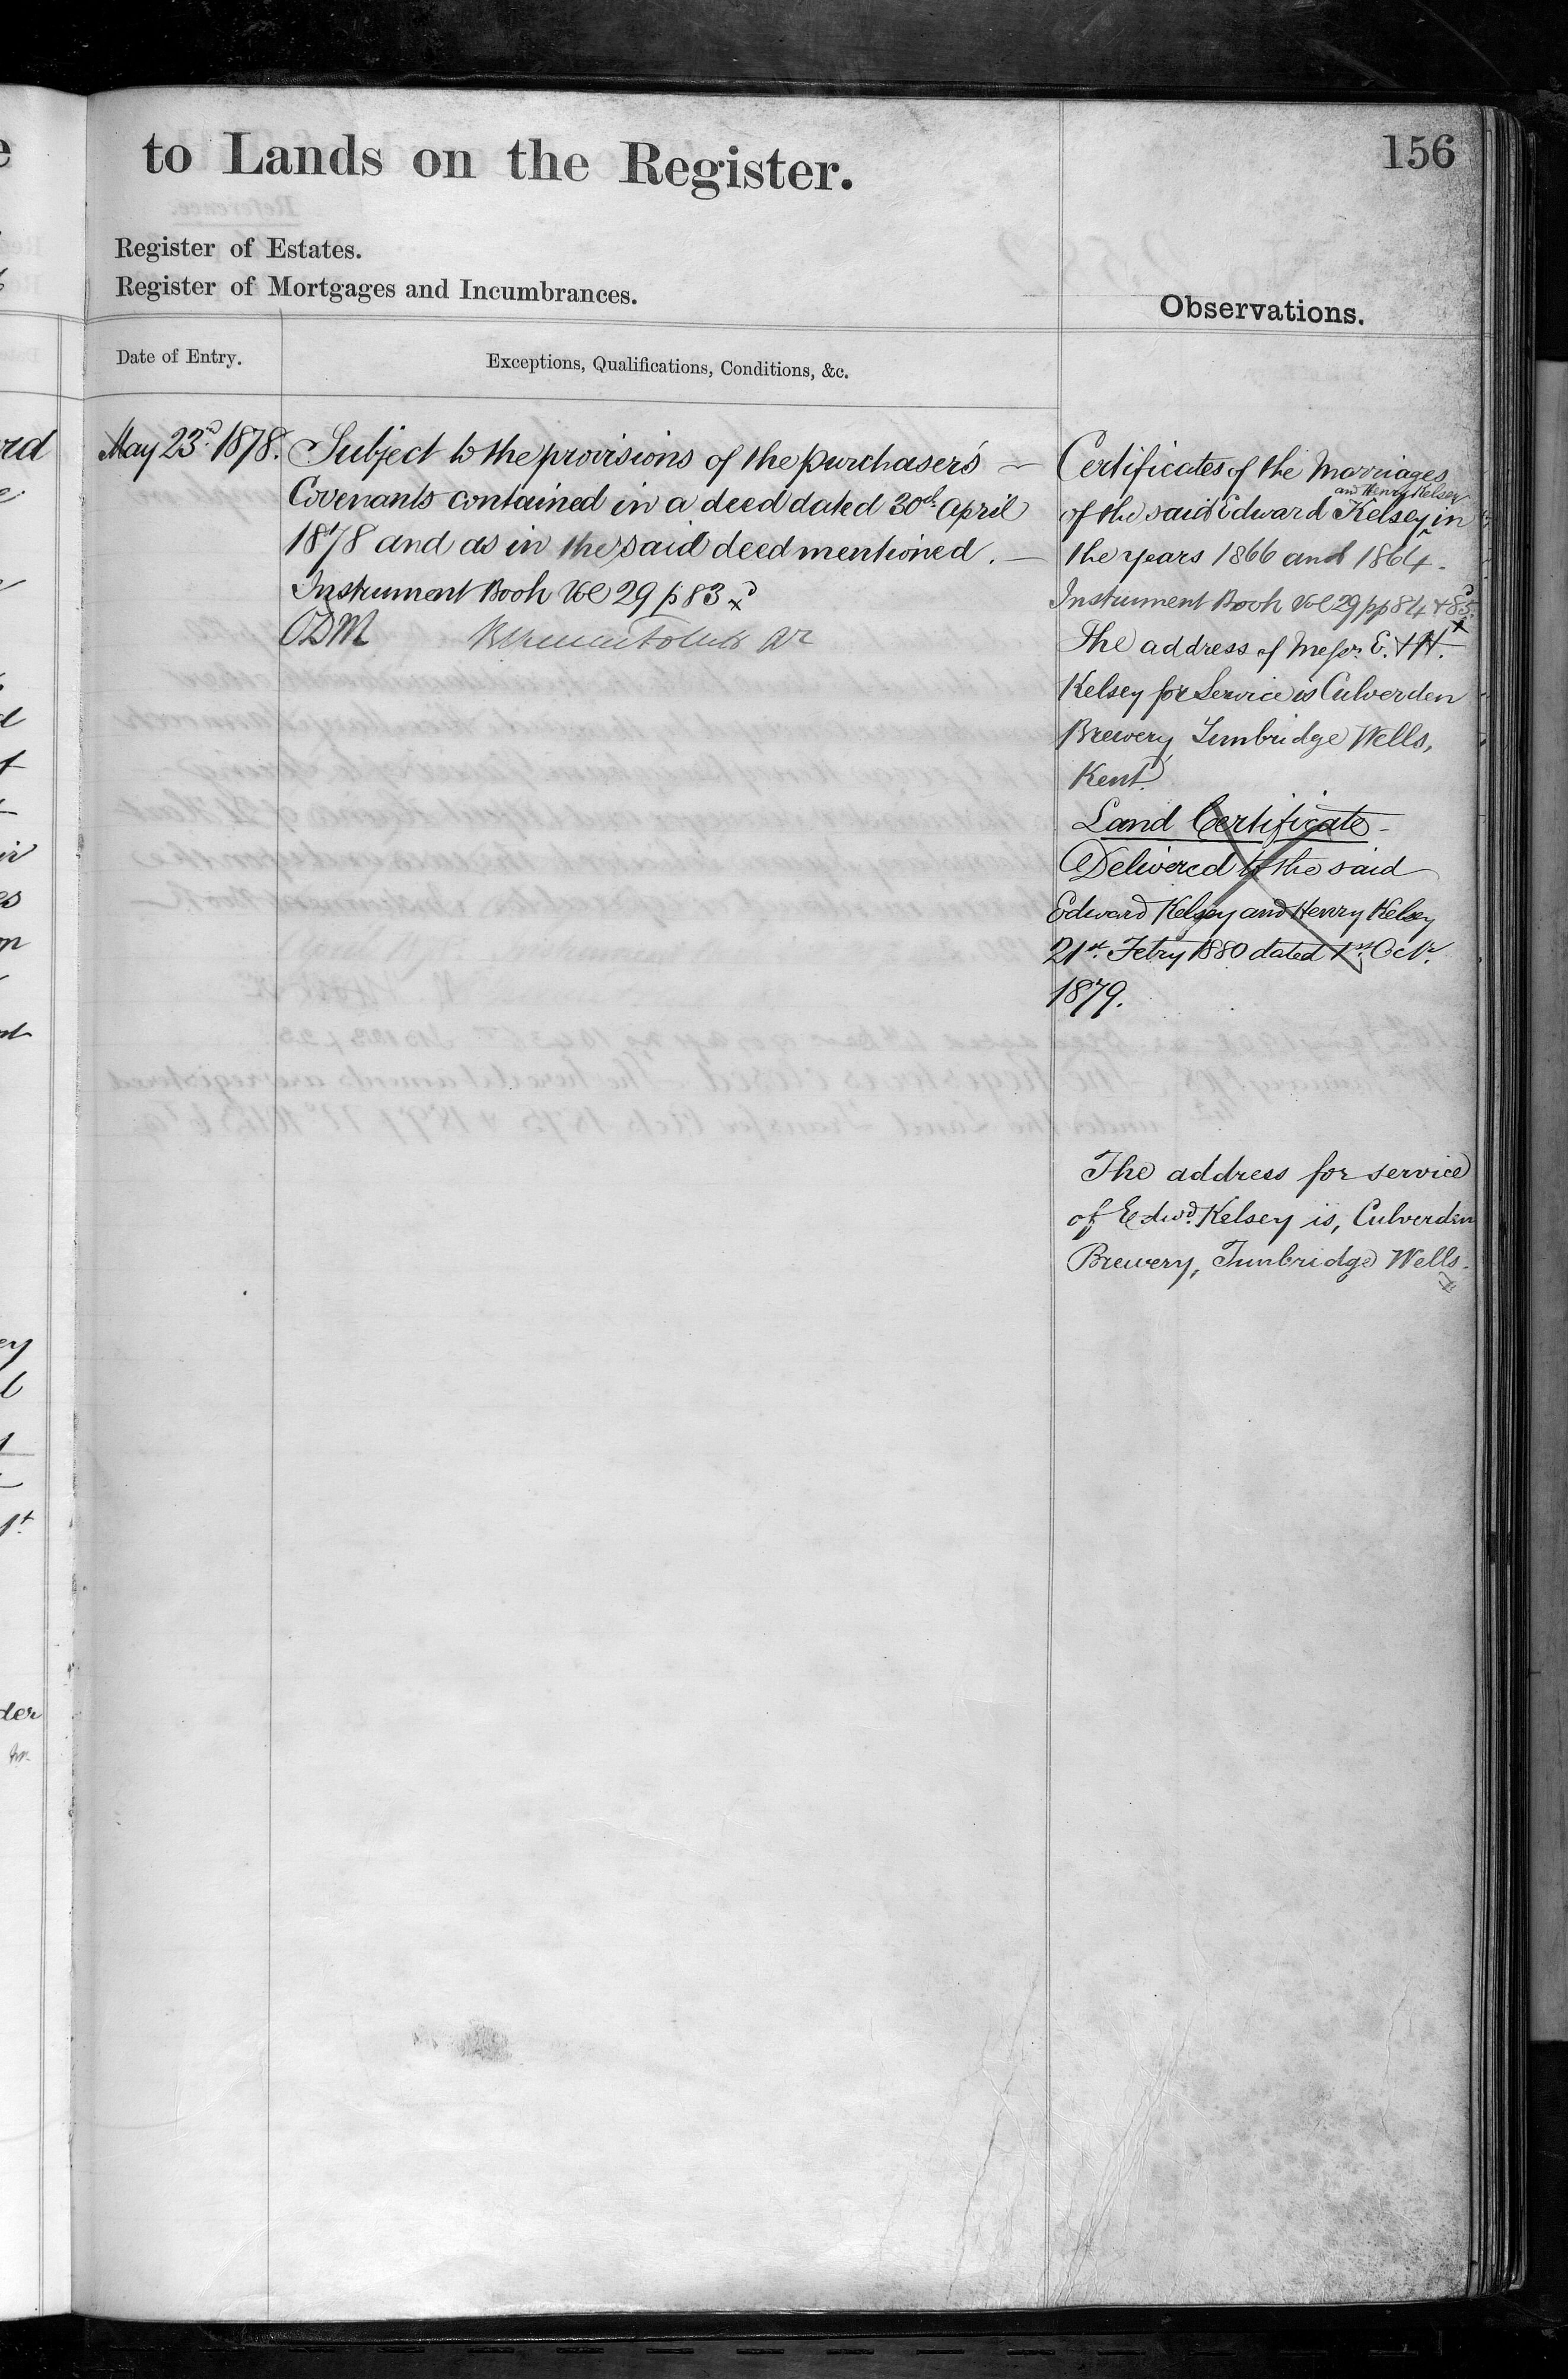 to Lands on the Register.
156
Register of Estates.
Register of Mortgages and Incumbrances.
Observations.
Date of Entry.
Exceptions, Qualifications, Conditions, &c.
May 23d. 1878.
Subject to the provisions of the purchaser's
Covenants contained in a deed dated 30th April
1878 and as in the said deed mentioned.
Instrument Book Vol 29 p 83
Certificates of the Marriages
of the said Edward Kelsey and Henry Kelsey in
the years 1866 and 1864.
Instrument Book Vol 29 pp 84 & 85
The address of Messrs. E. & H.
Kelsey for Service is Culverden
Brewery, Tunbridge Wells,
Kent
Land Certificate
Delivered to the said
Edward Kelsey and Henry Kelsey
21st. Febry 1880 dated 1st. Octr.
1879.
The address for service
of Edwd. Kelsey is, Culverden
Brewery, Tunbridge Wells.